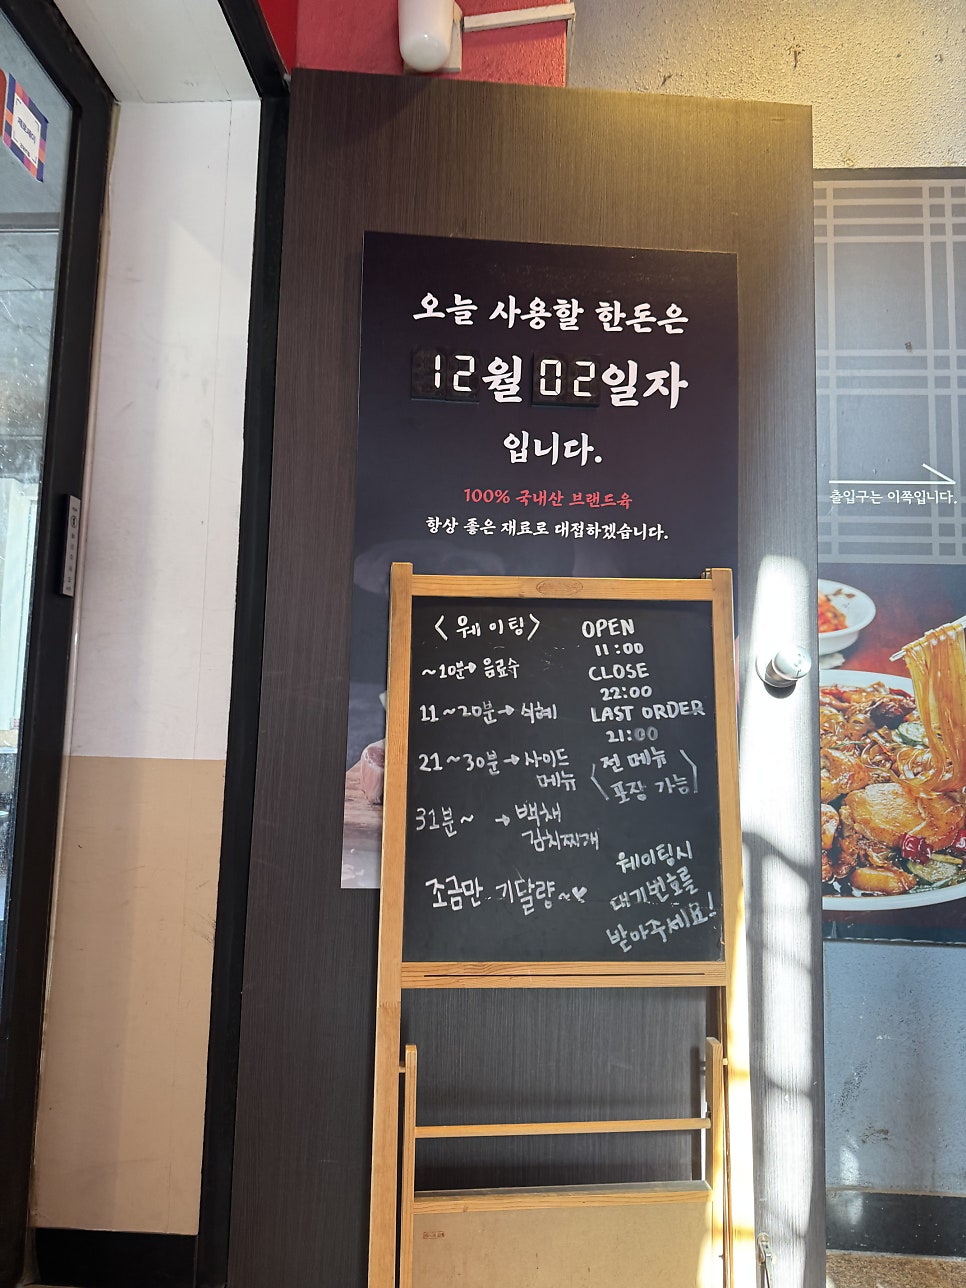 오늘 사용할 한돈은
12월 02일자
입니다.
100% 국내산 브랜드육
항상 좋은 재료로 대접하겠습니다.
출입구는 이쪽입니다.
<웨이팅>
~10분→음료수
11~20분→식혜
21~30분→사이드
메뉴
31분~ →백채
김치찌개
조금만 기달량~♥
OPEN
11:00
CLOSE
22:00
LAST ORDER
21:00
<전 메뉴
포장 가능>
웨이팅시
대기번호를
받아주세요!